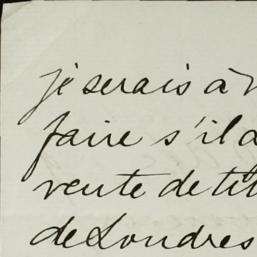 je serais à
faire s'il
vente de
de Londres